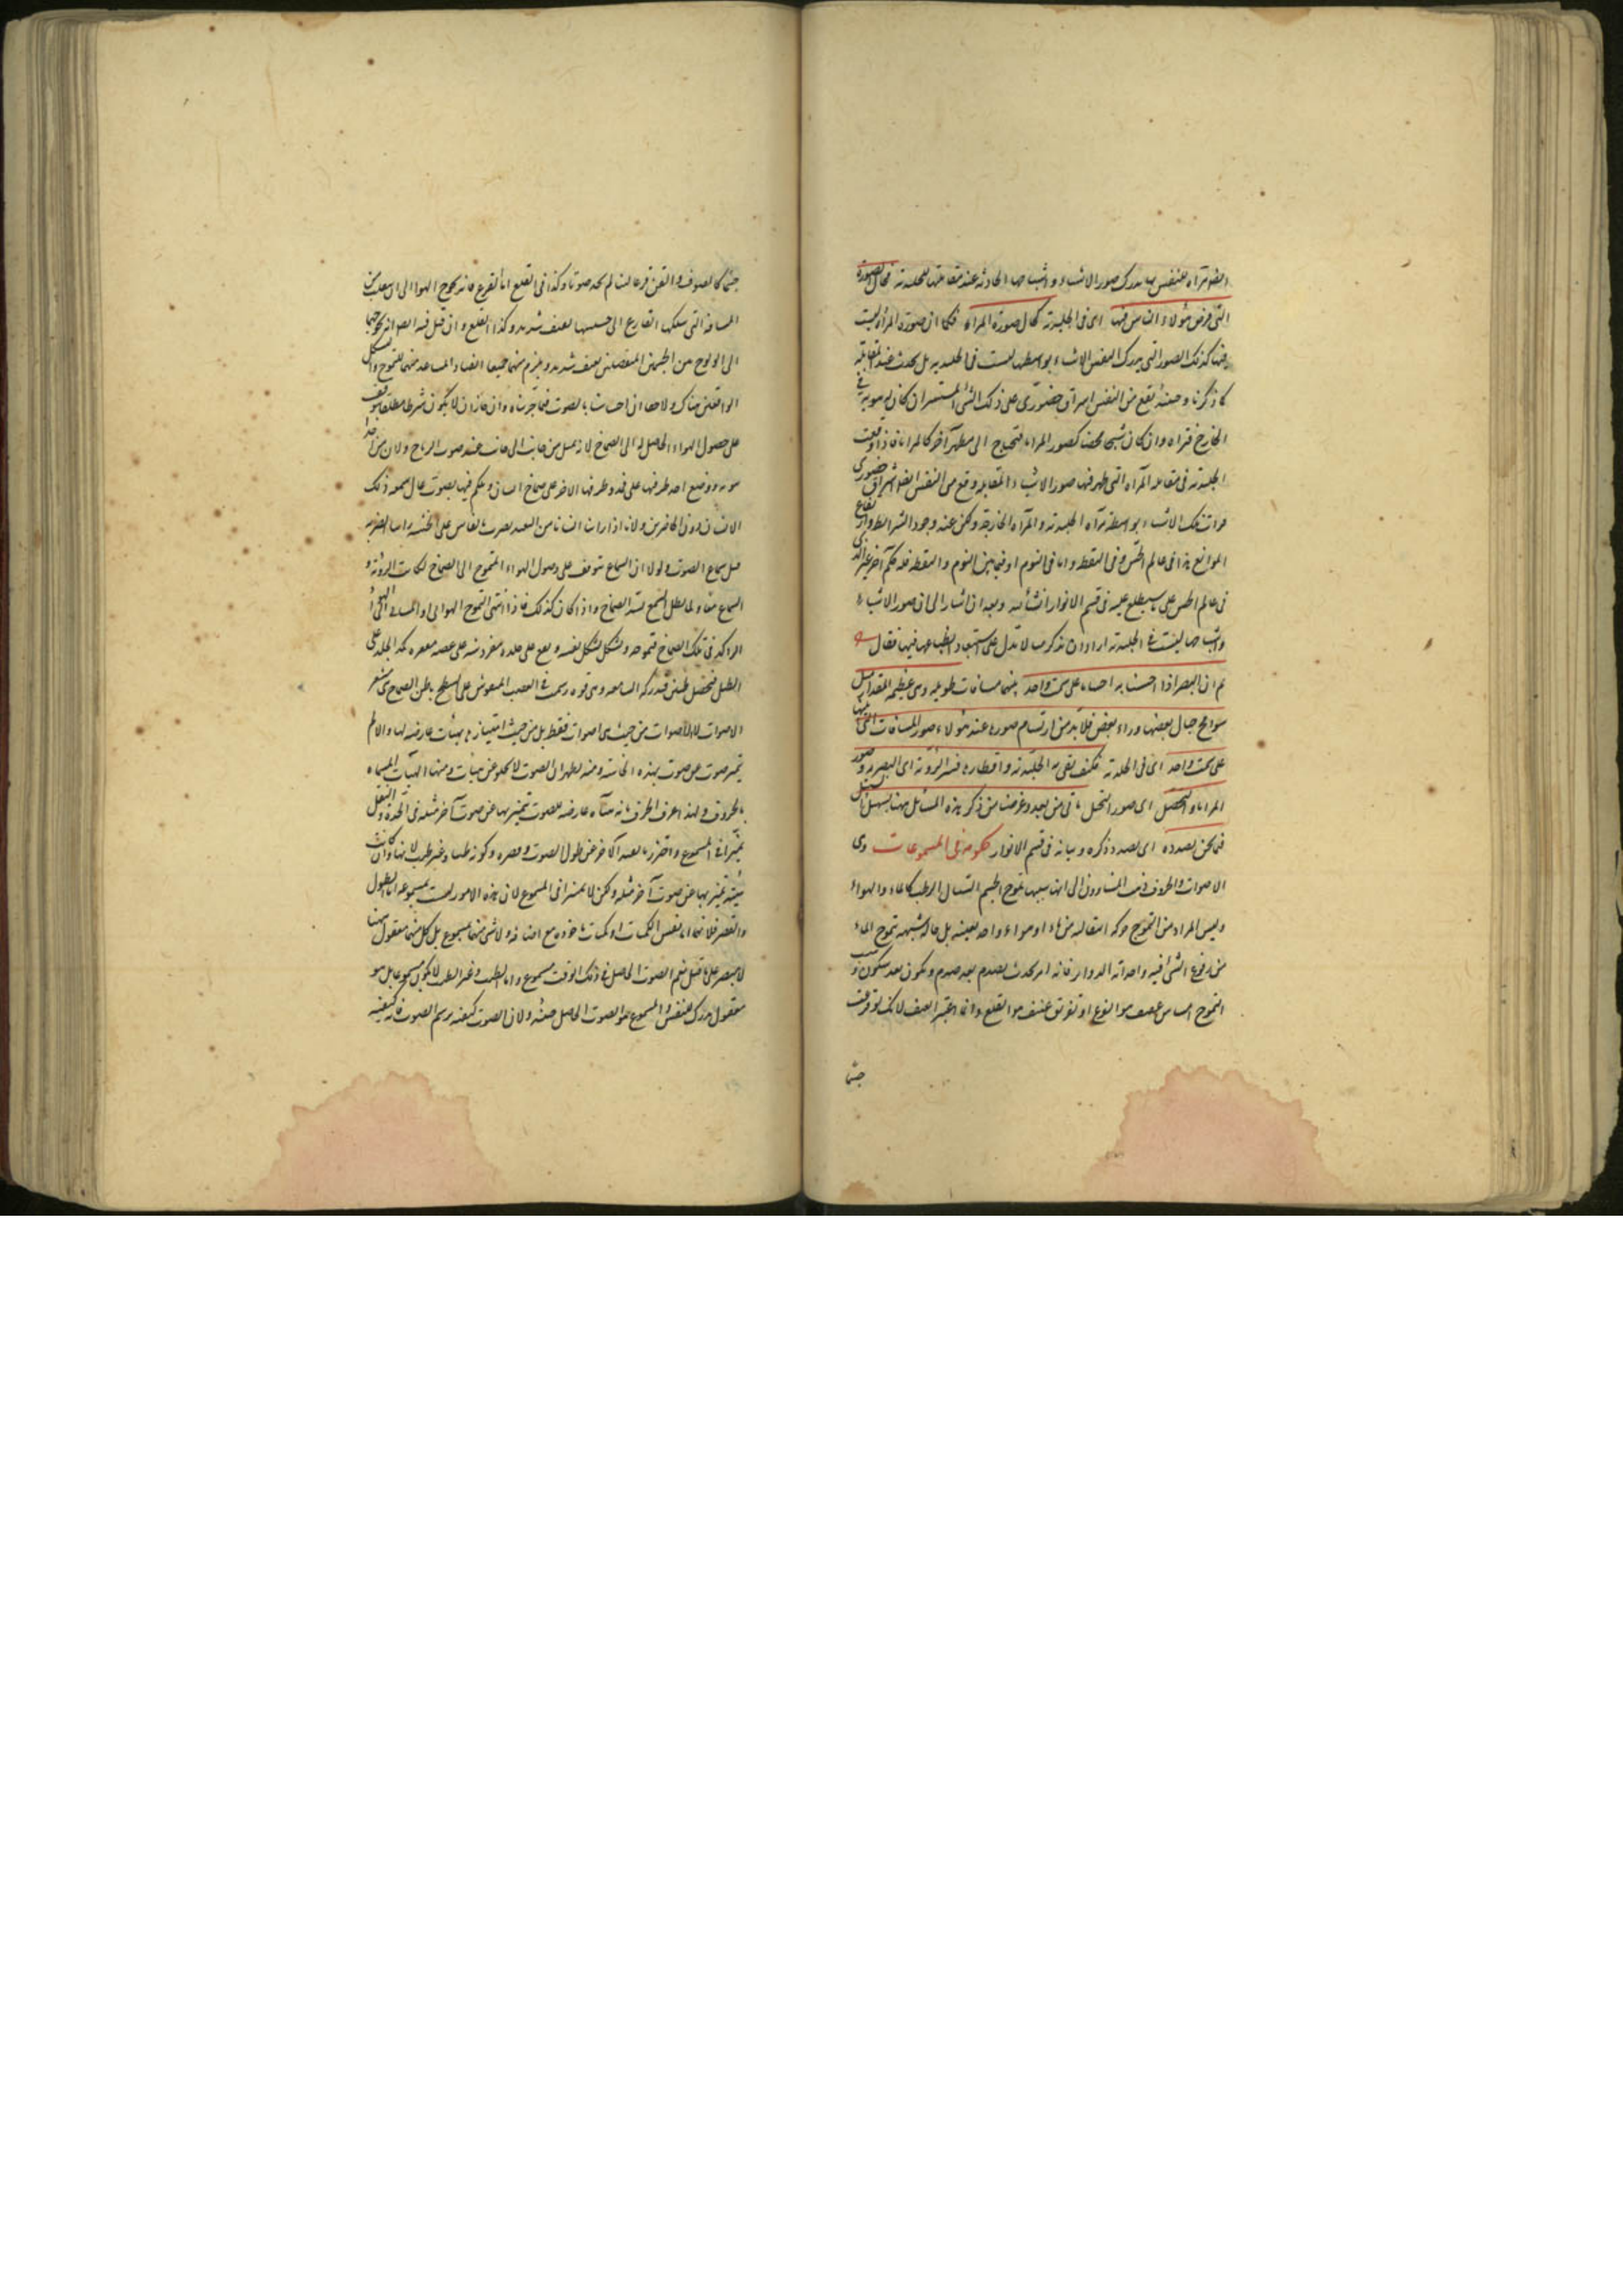 للنفس بها يدرك صور الاشياء واشباحها الحادثة عند مقابلتها للجليدية فحال الصورة
التى فرض هؤلاء الناس فيها اى فى الجليدية كحال صورة المرآة فكما ان صورة المرآة ليست
فيها كذلك الصور التى يدرك النفس الاشياء بواسطتها ليست فى الجليدية بل تحدث عند المقابلة
كما ذكرنا وحينئذ يقع من النفس اشراق حضورى على ذلك الشئ المستنير ان كان له هوية فى
الخارج فتراه وان كان شبحا محضا كصور المرايا فتحتاج الى مظهر آخر كالمرايا فاذا وقعت
الجليدية فى مقابلة المرآة التى ظهر فيها صور الاشياء المقابلة وقع من النفس ايضا اشراق حضورى
فرأت تلك الاشياء بواسطة مرآة الجليدية والمرآة الخارجة ولكن عند وجود الشرائط وارتفاع
الموانع هذا فى عالم الحس وفى اليقظة واما فى النوم او فيما بين النوم واليقظة فله حكم آخر غير الذى
فى عالم الحس على ما سيطلع عليه فى قسم الانوار ان شاء الله وبعد ان اشار الى ان صور الاشياء
واشباحها ليست فى الجليدية اراد ان يذكر ما يدل على استبعاد انطباعها فيها فقال
ثم ان البصر اذا احسسنا به اجساما على سمت واحد بينها مسافات طويلة وهى عظيمة المقدار مثل
شوامخ جبال بعضها وراء بعض فلا بد من ارتسام صورة عند هؤلاء وصور المسافات التى بينها
على سمت واحد اى فى الجليدية فكيف يفى به الجليدية واقطارها فسر الرؤية اى البصرية وصور
المرايا والتخيل اى صور التخيل يأتى من بعد وغرضنا من ذكر هذه المسائل ههنا تسهيل السبيل
فيما نحن بصدده اى بصدد ذكره وبيانه فى قسم الانوار حكومة فى المسموعات وهى
الاصوات والحروف ذهب المشاؤون الى ان سببها تموج الجسم السيال الرطب كالماء والهواء
وليس المراد من التموج حركة انتقالية من ماء او هواء واحد بعينه بل حالة شبيهة بتموج الماء
من وقوع الشئ فيه واحداثه الدوائر فانه امر يحدث بصدم بعد صدم وسكون بعد سكون وسبب
التموج امساس عنيف هو القرع او تفريق عنيف هو القلع وانما اعتبر العنف لانك لو قرعت
جسما
جسما كالصوف والقطن قرعا لينا لم تجد صوتا وكذا فى القلع اما القرع فانه يحوج الهواء الى ان ينقلب من
المسافة التى يسلكها القارع الى جنبيها بعنف شديد وكذا القلع
الى الولوج بين الجسمين المنفصلين بعنف شديد ويلزم منهما جميعا انقياد المتباعد منهما للتموج والشكل
الواقعين هناك ولا خفاء ان احساسنا بالصوت فيما جربناه وان جاز ان لا يكون شرطا مطلقا يتوقف
على حصول الهواء الحامل له الى الصماخ لانه يميل من جانب الى جانب عند هبوب الرياح ولان من اخذ
انبوبة ووضع احد طرفيها على فمه وطرفها الآخر على صماخ انسان وتكلم فيها بصوت عال سمعه ذلك
الانسان دون الحاضرين ولانا اذا رأينا انسانا من البعيد يضرب بفاس على الخشبة رأينا الضربة
قبل سماع الصوت ولولا ان السماع يتوقف على وصول الهواء المتموج الى الصماخ لكانت الرؤية و
السماع معا ولما بطل السمع بسد الصماخ واذا كان كذلك فاذا انتهى التموج الهوائى او المائى الى الهواء
الراكد فى تلك الصماخ فتموجه وتشكل بشكل نفسه ويقع على جلدة مفروشة على عصبة مقعرة كمد الجلد على
الطبل فيحصل طنين فتدركه السامعة وهى قوة رتبت فى العصب المفروش على سطح باطن الصماخ هى مشعر
الاصوات لا للاصوات من حيث هى اصوات فقط بل من حيث امتيازها بهيئات عارضة لها والا لم
يتميز صوت عن صوت بهذه الحاسة ومنه يظهر ان الصوت لا يخلو عن هيئات ومنها الهيئات المسماة
بالحروف ولهذا عرف الحرف بانه هيئة عارضة للصوت يتميز بها عن صوت آخر مثله فى الحدة والثقل
تميزا فى المسموع واحترز بالقيد الآخر عن طول الصوت وقصره وكونه طيبا وغير طيب لانها وان كانت
هيئة تميز بها عن صوت آخر مثله ولكن لا تميزا فى المسموع لان هذه الامور ليست مسموعة اما الطول
والقصر فلانهما اما نفس الكميات او كميات مأخوذة مع اضافة ولا شئ منهما بمسموع بل كل منهما معقول ههنا
لا مبصر على ما قيل نعم الصوت الحاصل فى ذلك الوقت مسموع واما الطيب وغير الطيب فلا يكون مسموعا بل هو
معقول مدرك للنفس والمسموع هو الصوت الحاصل حينئذ ولان الصوت كيفية يرسم الصوت فانه كيفية